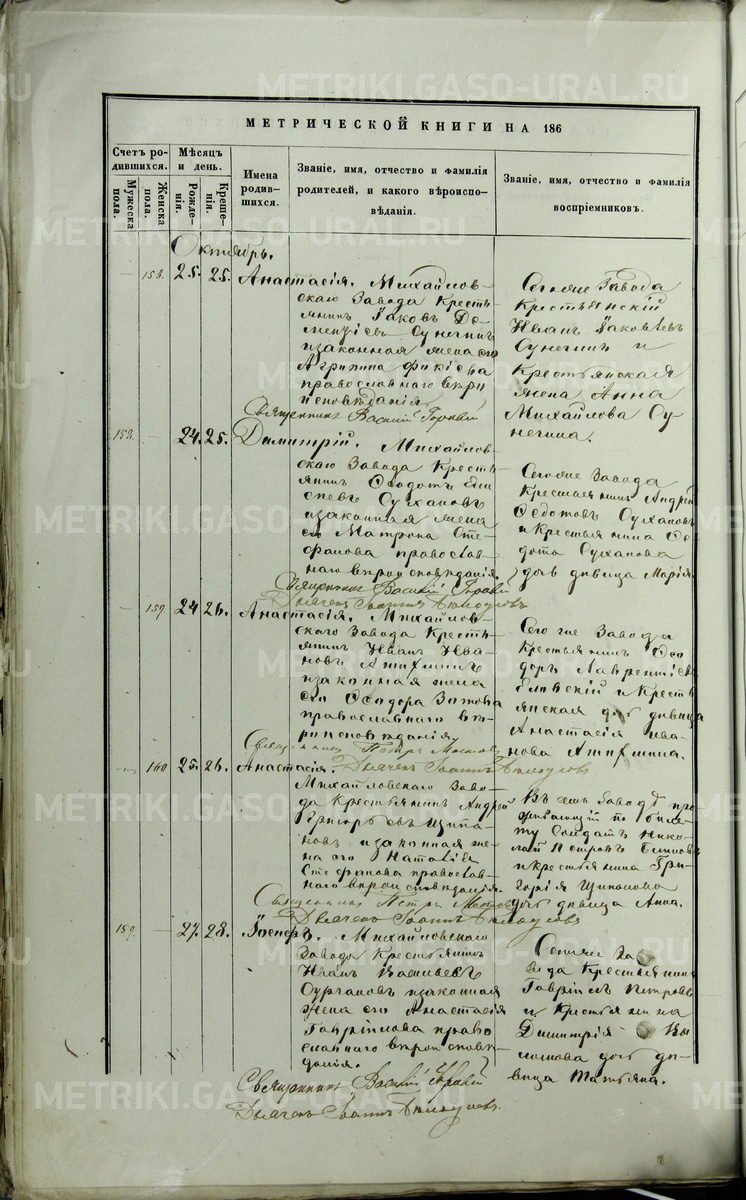 МЕТРИЧЕСКОЙ КНИГИ НА 186
Счетъ ро-
дившихся.
Мужеска
пола.
Женска
пола.
Мѣсяцъ
и день.
Рожде-
нія.
Креще-
нія.
Имена
родив-
шихся.
Званіе, имя, отчество и фамилія
родителей, и какого вѣроиспо-
вѣданія.
Званіе, имя, отчество и фамилія
воспріемниковъ.
Октябрь.
158. 25. 25. Анастасія. Михайлов-
скаго Завода Кресть-
янинъ Іаковъ
Сунегинъ
и законная жена его
Агрипина
православнаго вѣро
исповѣданія
Священникъ Василій
Сегоже Завода
Крестьянскій
Иванъ Іаковлевъ
Сунегинъ и
Крестьянская
жена Анна
Михайлова Су-
негина.
158. 24. 25. Димитрій. Михайлов-
скаго Завода Кресть-
янинъ Ѳеодотъ
Сухановъ
и законная жена
его Матрона Сте-
фанова православ-
наго вѣроисповѣданія.
Священникъ Василій
Дьячекъ Іоаннъ
Сегоже Завода
Крестьянинъ Андрей
Ѳедотовъ Сухановъ
и крестьянина Ѳе-
дота Суханова
дочь дѣвица Марія.
159. 24 26. Анастасія. Михайлов-
скаго Завода Кресть-
янинъ Иванъ Ива-
новъ
и законная жена
его Ѳеодора Зотова
православнаго вѣ-
роисповѣданія.
Священникъ Петръ
Дьячекъ Іоаннъ
Сего же Завода
Крестьянинъ Ѳео-
доръ Лаврентіевъ
и Кресть
янская дочь дѣвица
Анастасія Ива-
нова
160 25. 26. Анастасія.
Михайловскаго Заво-
да Крестьянинъ Андрей
Григорьевъ Щипа-
новъ и законная же-
на его Наталія
Стефанова православ-
наго вѣроисповѣданія.
Священникъ Петръ
Дьячекъ Іоаннъ
Въ семъ Заводѣ про-
живающій по биле-
ту Солдатъ Нико-
лай Петровъ
и крестьянина Гри-
горія Щипанова
дочь дѣвица Анна.
159. 27. 28. Іосифъ. Михайловскаго
Завода Крестьянинъ
Иванъ Васильевъ
Сургановъ и законная
жена его Анастасія
Гавріилова право
славнаго вѣроисповѣ-
данія.
Священникъ Василій
Дьячекъ Іоаннъ
Сегоже За-
вода Крестьянинъ
Гавріилъ Петровъ
и Крестьянина
Димитрія
дочь дѣ-
вица Татьяна.
METRIKI.GASO-URAL.RU